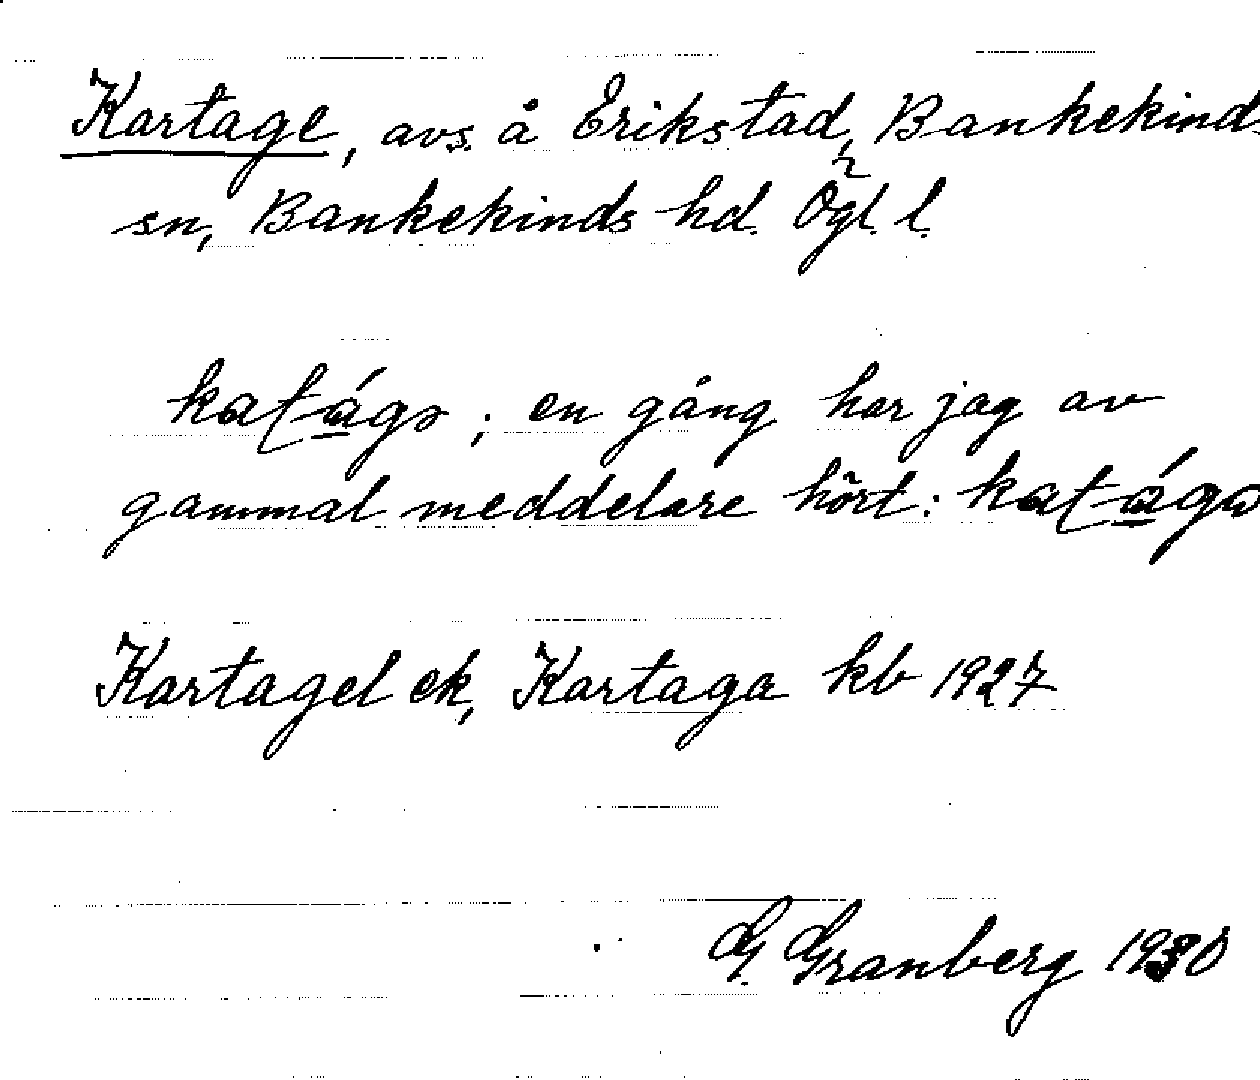 Kartage, avs. å Erikstad, Bankekinds
sn, Bankekinds hd. Ögl. l.
en gång har jag av
gammal meddelare hört:
Kartagel ek, Kartaga kb 1927
G. Granberg 1930